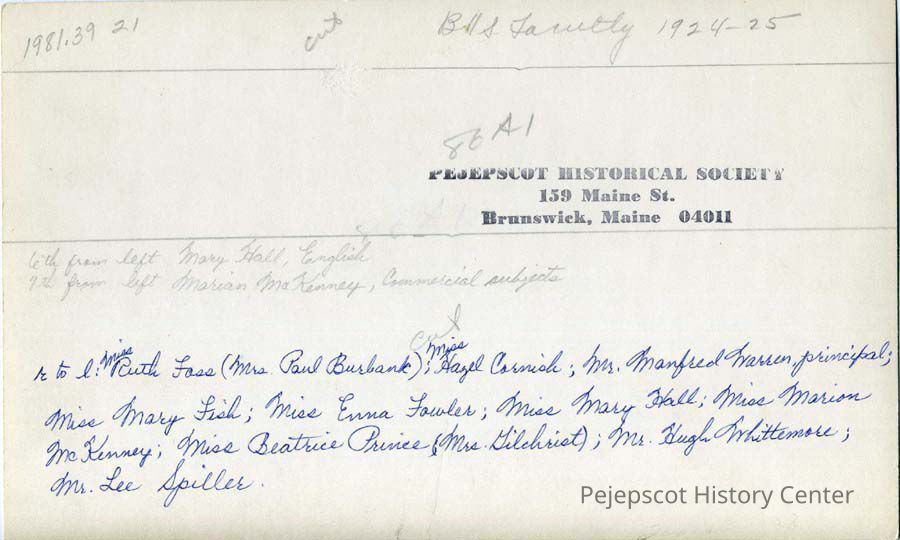 1981.39 21
cut
BHS Faculty 1924-25
86 A1
PEJEPSCOT HISTORICAL SOCIETY
159 Maine St.
Brunswick, Maine 04011
6th from left Mary Hall, English
9th from left Marian McKenney, Commercial subjects
cut
r to l: Miss Ruth Foss (Mrs. Paul Burbank); Miss Hazel Cornish; Mr. Manfred Warren, principal;
Miss Mary Fish; Miss Enna Fowler; Miss Mary Hall; Miss Marion
McKenney; Miss Beatrice Prince (Mrs. Gilchrist); Mr. Hugh Whittemore;
Mr. Lee Spiller.
Pejepscot History Center